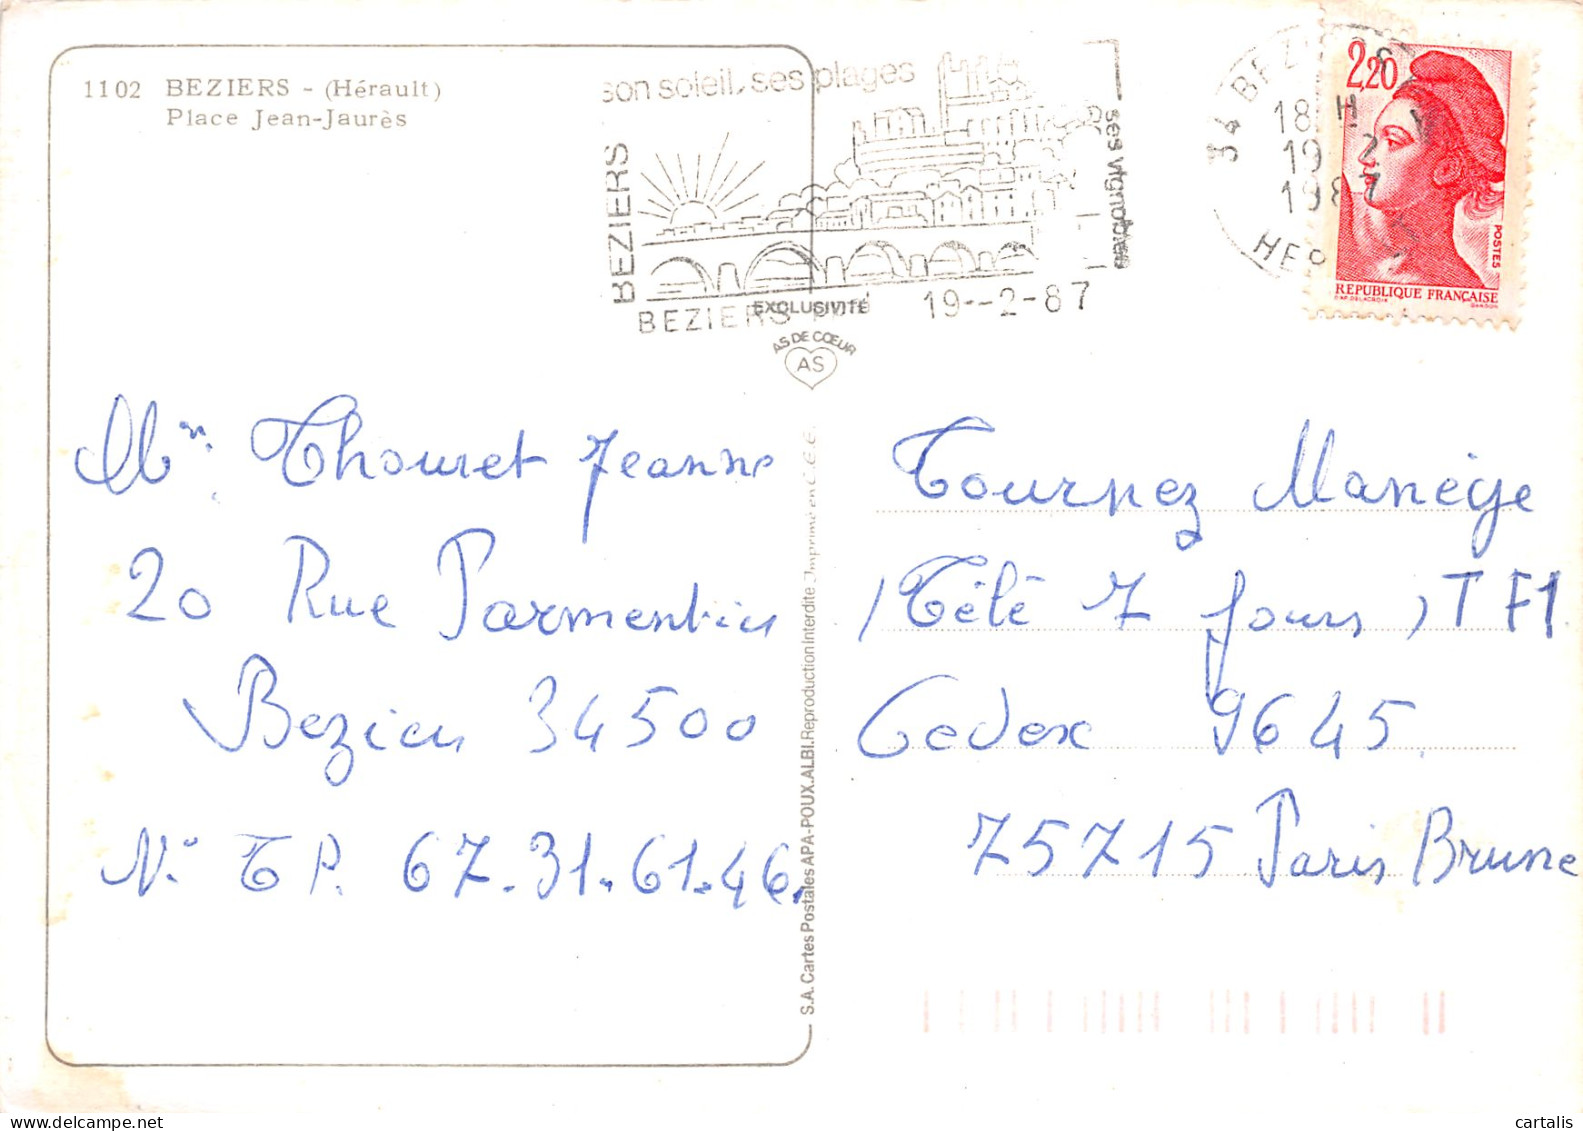 1102 BEZIERS - (Hérault)
Place Jean-Jaurès
son soleil, ses plages
BEZIERS
ses vignobles
BEZIERS
19--2-87
34 BEZI
18 H
19 2
1987
HER
2,20
POSTES
REPUBLIQUE FRANÇAISE
EXCLUSIVITÉ
AS DE CŒUR
AS
Mm. Thouret Jeanne
20 Rue Parmentier
Beziers 34500
N° TP. 67.31.61.46.
S.A. Cartes Postales APA-POUX.ALBI. Reproduction Interdite Imprimé en C.E.E.
Tournez Manège
/Télé 7 jours, TF1
Cedex 9645.
75715 Paris Brune
cartalis